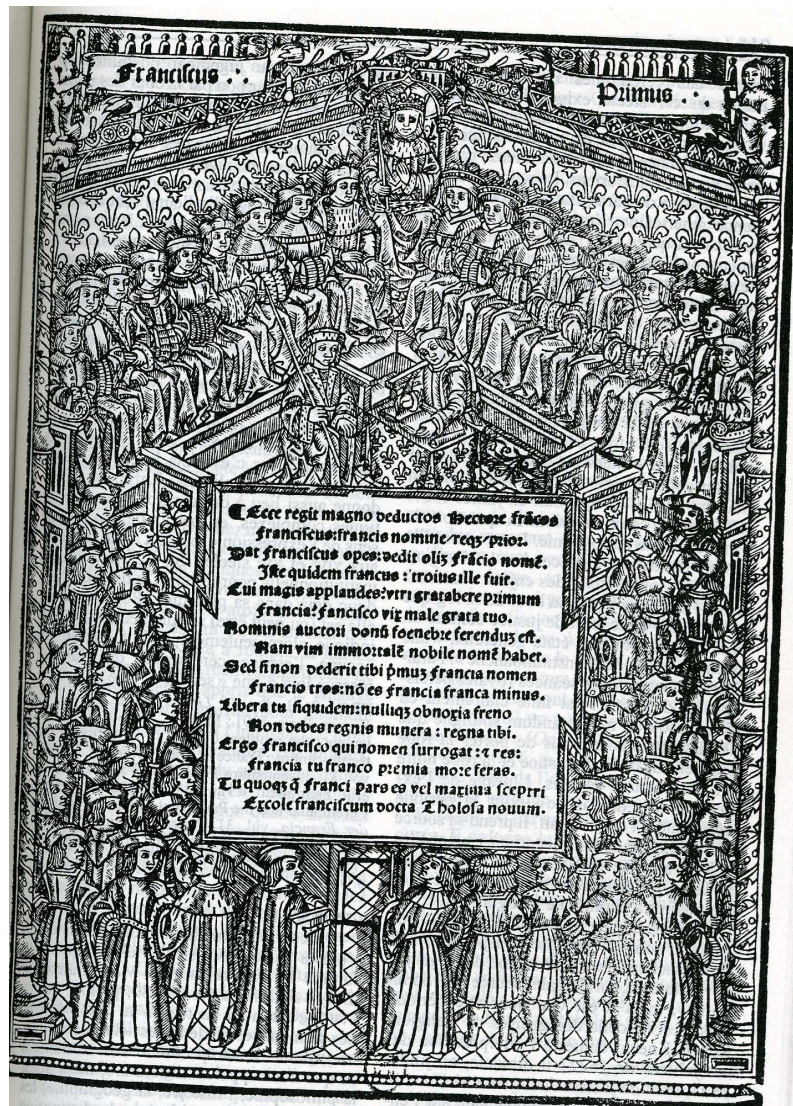 Franciscus ⁖
Primus ⁖
¶Ecce regit magno deductos Hectore frãcos
franciscus: francis nomine/ reqꝫ/ prior.
Dat franciscus opes: dedit oliꝫ frãcio nomẽ.
Iste quidem francus : troius ille fuit.
Cui magis applandes? vtri gratabere primum
francia? fancisco vix male grata tuo.
Nominis auctori donũ foenebre ferenduꝫ est.
Nam vim immortalẽ nobile nomẽ habet.
Sed si non dederit tibi p̃muꝫ francia nomen
francio tros: nõ es francia franca minus.
Libera tu siquidem: nulliqꝫ obnoxia freno
Non debes regnis munera : regna tibi.
Ergo francisco qui nomen surrogat: ⁊ res:
francia tu franco premia more feras.
Tu quoqꝫ q̃ franci pars es vel maxima sceptri
Excole franciscum docta Tholosa nouum.